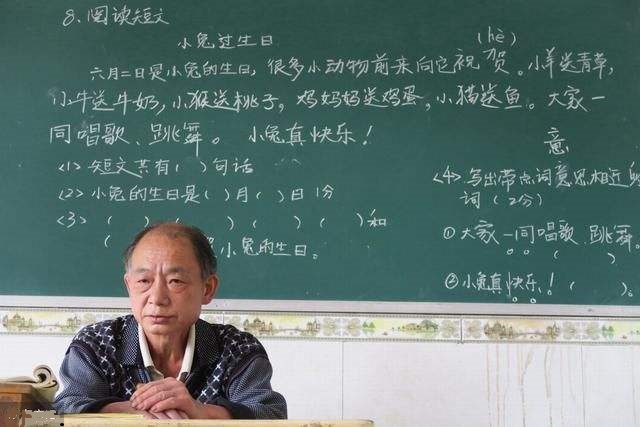 8. 阅读短文
小兔过生日
(hè)
六月二日是小兔的生日, 很多小动物前来向它祝贺。小羊送青草,
小牛送牛奶,小猴送桃子,鸡妈妈送鸡蛋,小猫送鱼。大家一
同唱歌、跳舞。小兔真快乐!
<1> 短文共有( )句话
<2> 小兔的生日是( )月( )日 1分
<3> ( ) ( ) ( ) ( )和
( 小兔的生日。
意
<4> 写出带点词意思相近的
词 (2分)
① 大家一同唱歌、跳舞。
( )
② 小兔真快乐!( )。